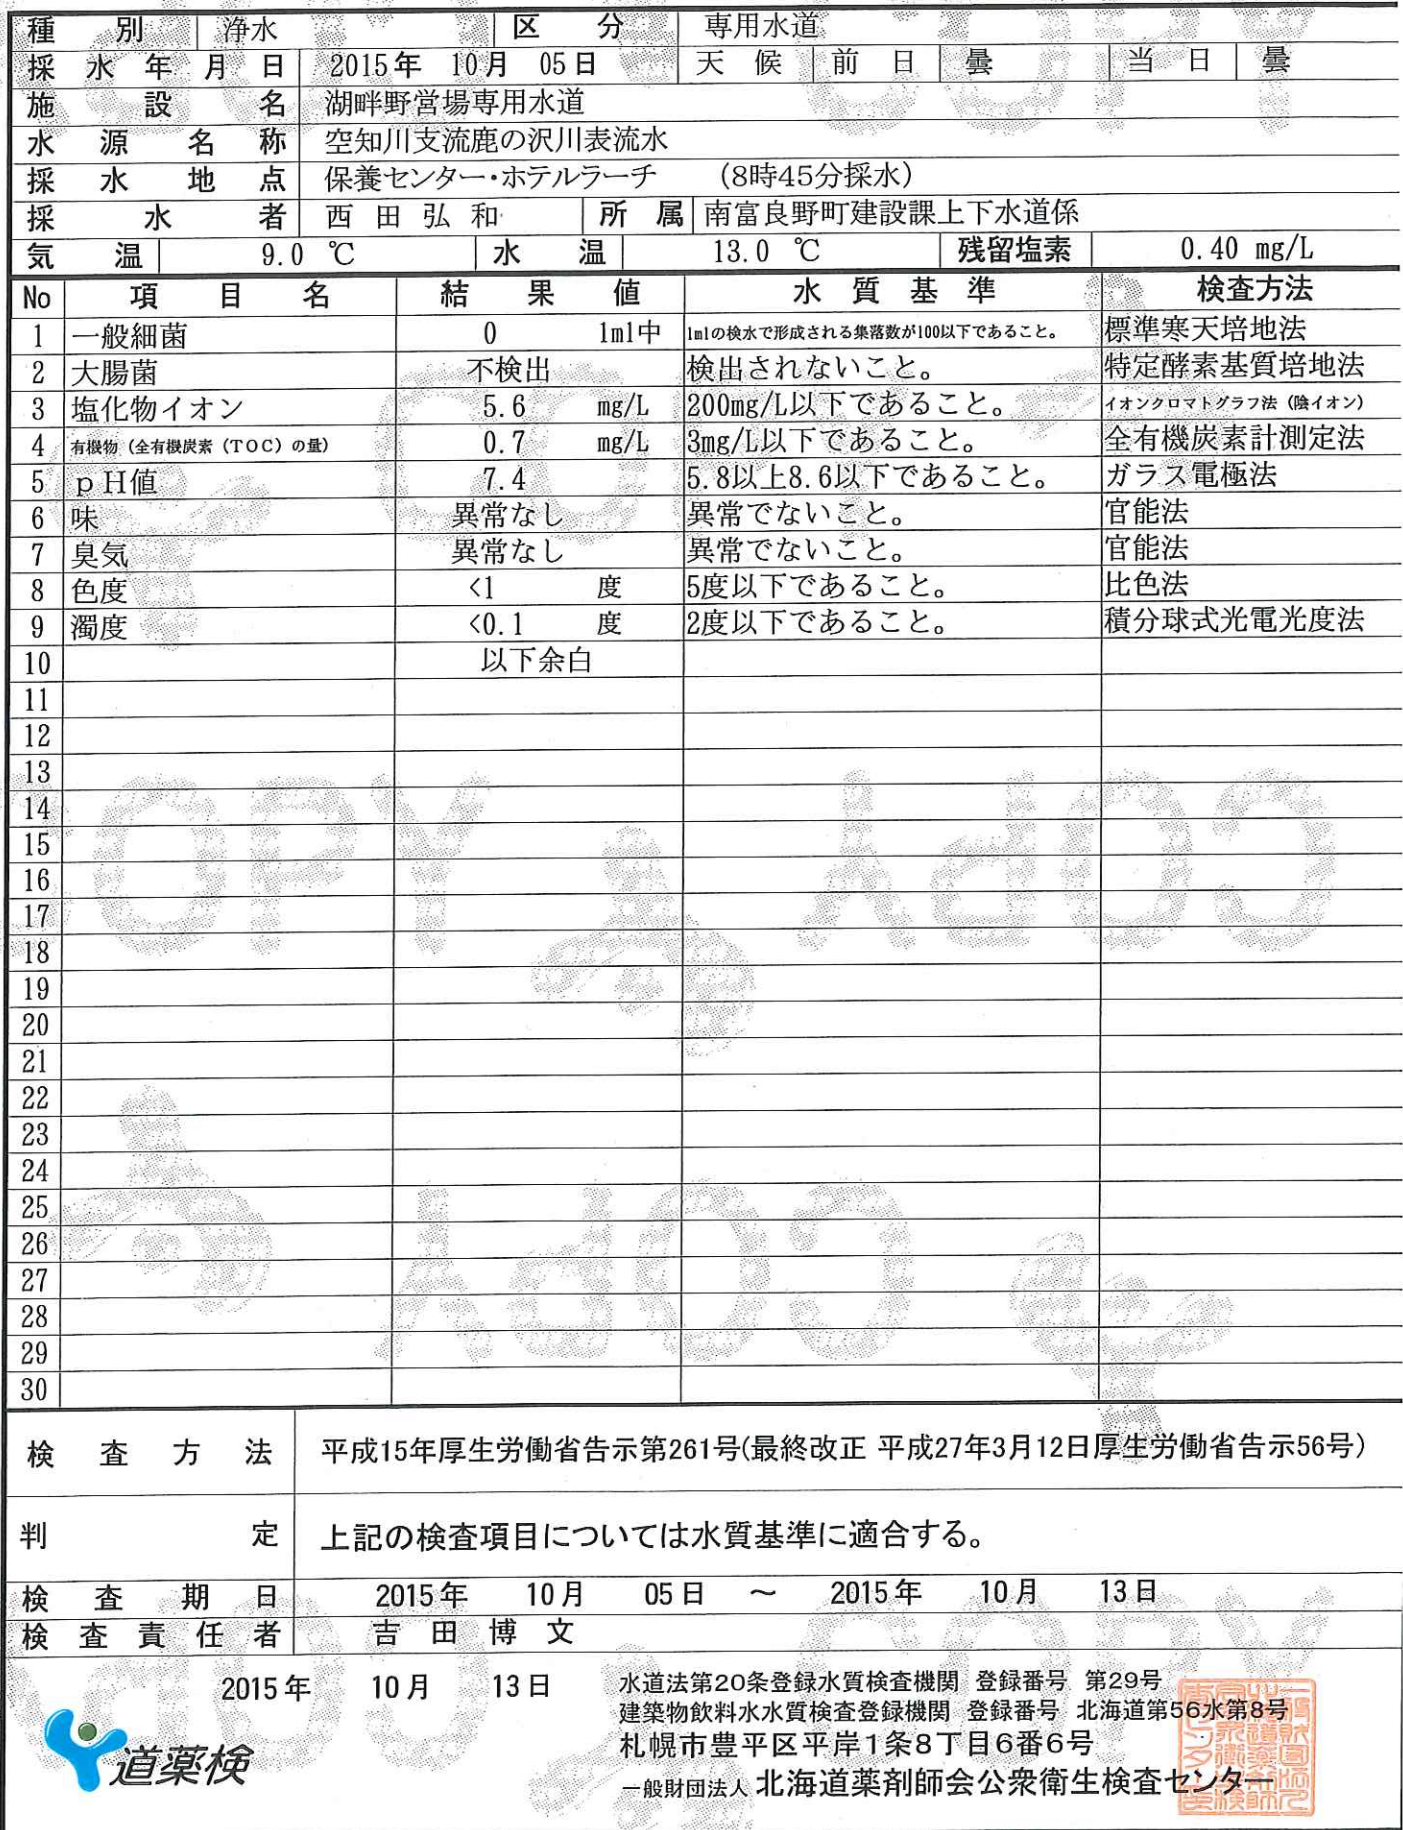 種別 浄水 区分 専用水道
採水年月日 2015年 10月 05日 天候 前日 曇 当日 曇
施設名 湖畔野営場専用水道
水源名称 空知川支流鹿の沢川表流水
採水地点 保養センター・ホテルラーチ (8時45分採水)
採水者 西田弘和 所属 南富良野町建設課上下水道係
気温 9.0 ℃ 水温 13.0 ℃ 残留塩素 0.40 mg/L
No 項目名 結果値 水質基準 検査方法
1 一般細菌 0 1ml中 1mlの検水で形成される集落数が100以下であること。 標準寒天培地法
2 大腸菌 不検出 検出されないこと。 特定酵素基質培地法
3 塩化物イオン 5.6 mg/L 200mg/L以下であること。 イオンクロマトグラフ法（陰イオン）
4 有機物（全有機炭素（TOC）の量） 0.7 mg/L 3mg/L以下であること。 全有機炭素計測定法
5 pH値 7.4 5.8以上8.6以下であること。 ガラス電極法
6 味 異常なし 異常でないこと。 官能法
7 臭気 異常なし 異常でないこと。 官能法
8 色度 <1 度 5度以下であること。 比色法
9 濁度 <0.1 度 2度以下であること。 積分球式光電光度法
10 以下余白
11
12
13
14
15
16
17
18
19
20
21
22
23
24
25
26
27
28
29
30
検査方法 平成15年厚生労働省告示第261号(最終改正 平成27年3月12日厚生労働省告示56号)
判定 上記の検査項目については水質基準に適合する。
検査期日 2015年 10月 05日 ～ 2015年 10月 13日
検査責任者 吉田博文
2015年 10月 13日
水道法第20条登録水質検査機関 登録番号 第29号
建築物飲料水水質検査登録機関 登録番号 北海道第56水第8号
札幌市豊平区平岸1条8丁目6番6号
一般財団法人 北海道薬剤師会公衆衛生検査センター
道薬検
COPY